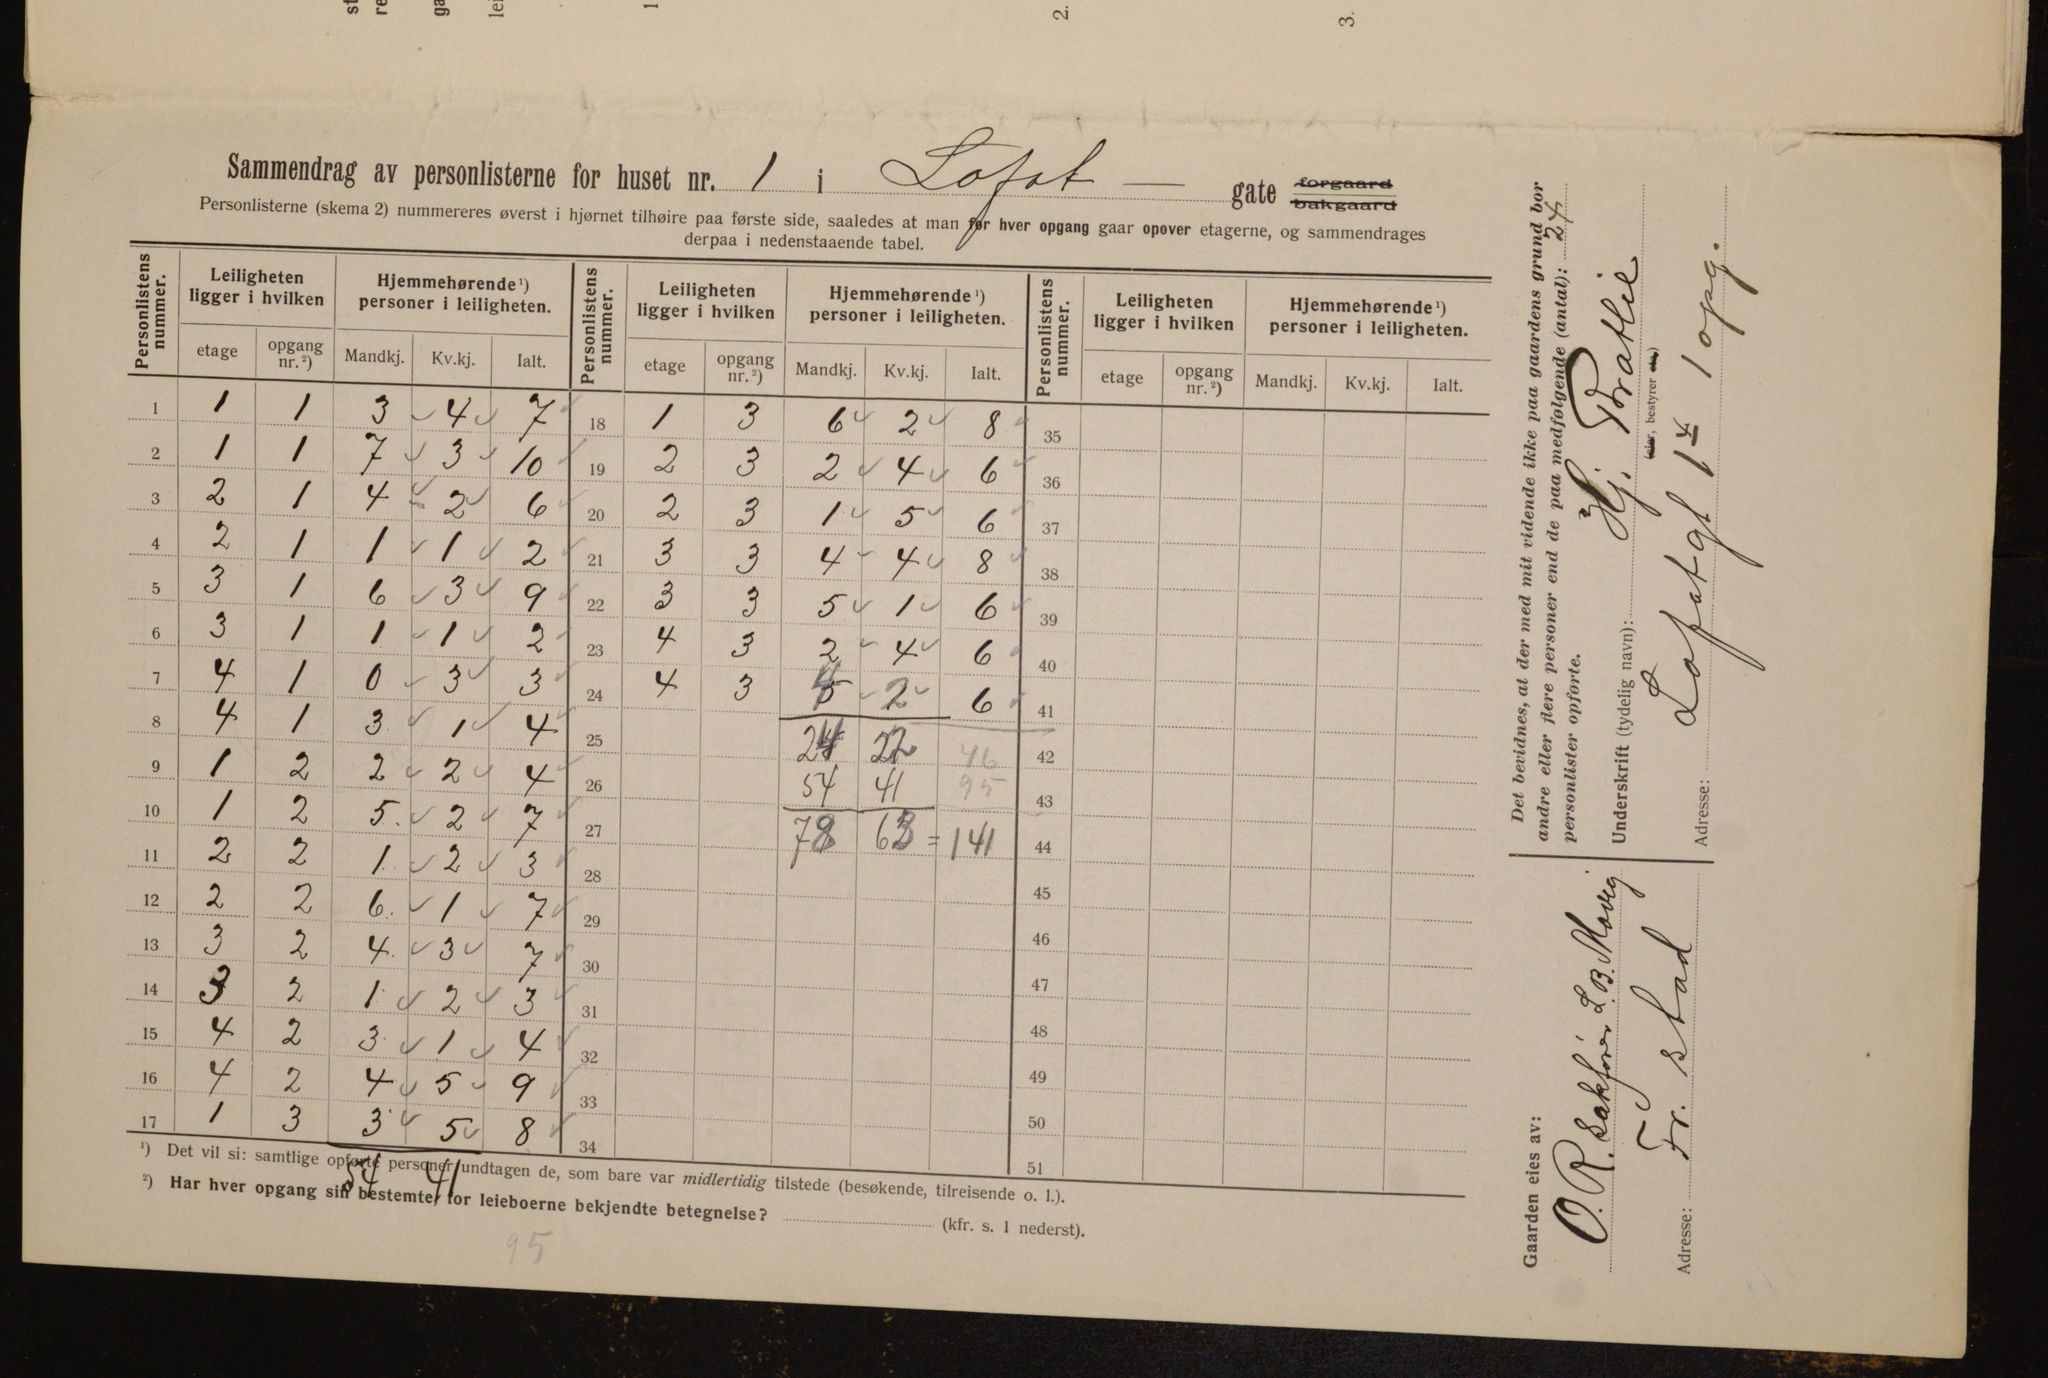 Sammendrag av personlisterne for huset nr. 1 i Lofot — gate forgaard bakgaard
Personlisterne (skema 2) nummereres øverst i hjørnet tilhøire paa første side, saaledes at man før hver opgang gaar opover etagerne, og sammendrages
derpaa i nedenstaaende tabel.
Personlistens nummer. Leiligheten ligger i hvilken Hjemmehørende ¹) personer i leiligheten. Personlistens nummer. Leiligheten ligger i hvilken Hjemmehørende ¹) personer i leiligheten. Personlistens nummer. Leiligheten ligger i hvilken Hjemmehørende ¹) personer i leiligheten.
etage opgang nr. ²) Mandkj. Kv.kj. Ialt. etage opgang nr. ²) Mandkj. Kv.kj. Ialt. etage opgang nr. ²) Mandkj. Kv.kj. Ialt.
1 1 1 3 4 7 18 1 3 6 2 8 35
2 1 1 7 3 10 19 2 3 2 4 6 36
3 2 1 4 2 6 20 2 3 1 5 6 37
4 2 1 1 1 2 21 3 3 4 4 8 38
5 3 1 6 3 9 22 3 3 5 1 6 39
6 3 1 1 1 2 23 4 3 2 4 6 40
7 4 1 0 3 3 24 4 3 4 2 6 41
8 4 1 3 1 4 25 24 22 46 42
9 1 2 2 2 4 26 54 41 95 43
10 1 2 5 2 7 27 78 63 = 141 44
11 2 2 1 2 3 28 45
12 2 2 6 1 7 29 46
13 3 2 4 3 7 30 47
14 3 2 1 2 3 31 48
15 4 2 3 1 4 32 49
16 4 2 4 5 9 33 50
17 1 3 3 5 8 34 51
54 41
¹) Det vil si: samtlige opførte personer undtagen de, som bare var midlertidig tilstede (besøkende, tilreisende o. l.).
²) Har hver opgang sin bestemte, for leieboerne bekjendte betegnelse? (kfr. s. 1 nederst).
95
Det bevidnes, at der med mit vidende ikke paa gaardens grund bor
andre eller flere personer end de paa medfølgende (antal): 24
personlister opførte.
Underskrift (tydelig navn): Hj. Brathie
(eier, bestyrer etc.)
Adresse: Lofotgt 1 4 1 opg.
Gaarden eies av:
O. R. Sakfører L. B. Moveg
Adresse: Fr. stad
1
2.
3.